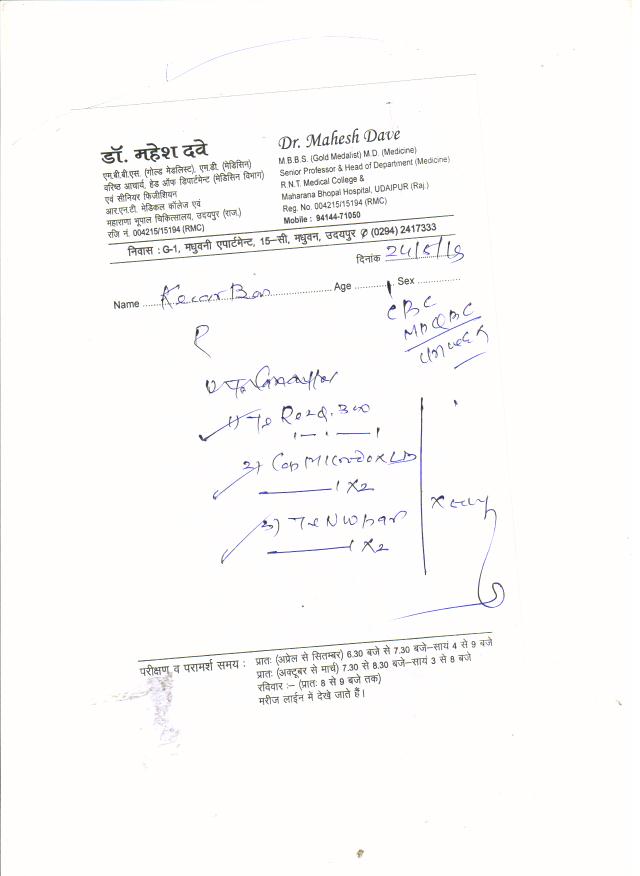 डॉ. महेश दवे
एम.बी.बी.एस. (गोल्ड मेडलिस्ट), एम.डी. (मेडिसिन)
वरिष्ठ आचार्य, हेड ऑफ डिपार्टमेन्ट (मेडिसिन विभाग)
एवं सीनियर फिजीशियन
आर.एन.टी. मेडिकल कॉलेज एवं
महाराणा भूपाल चिकित्सालय, उदयपुर (राज.)
रजि नं. 004215/15194 (RMC)
Dr. Mahesh Dave
M.B.B.S. (Gold Medalist) M.D. (Medicine)
Senior Professor & Head of Department (Medicine)
R.N.T. Medical College &
Maharana Bhopal Hospital, UDAIPUR (Raj.)
Reg. No. 004215/15194 (RMC)
Mobile : 94144-71050
निवास : G-1, मधुवनी एपार्टमेन्ट, 15–सी, मधुवन, उदयपुर ✆ (0294) 2417333
दिनांक 24/5/18
Name Kesar Bai Age Sex
CBC
MP QBC
R
1) Te Rezq. 300
2) Cap Microdox LB
1 X 2
3)
1 X 2
परीक्षण व परामर्श समय : प्रातः (अप्रेल से सितम्बर) 6.30 बजे से 7.30 बजे–सायं 4 से 9 बजे
प्रातः (अक्टूबर से मार्च) 7.30 से 8.30 बजे–सायं 3 से 8 बजे
रविवार :– (प्रातः 8 से 9 बजे तक)
मरीज लाईन में देखे जाते हैं।